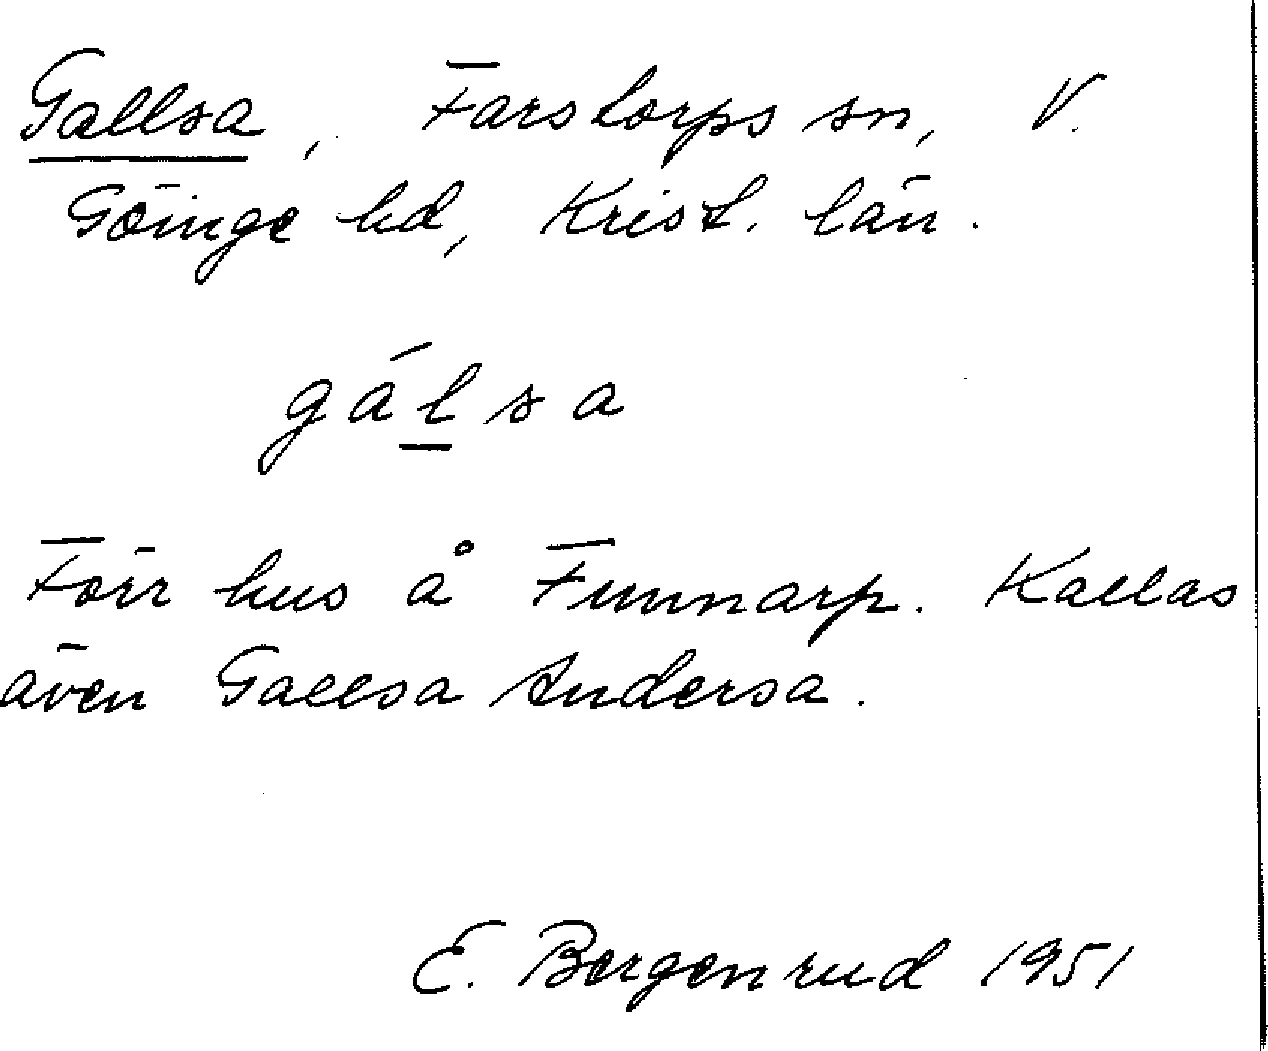 Gallsa, Farstorps sn, V.
Göinge hd, Krist. län.
gálsa
Förr hus å Funnarp. Kallas
även Gallsa Andersa.
E. Bergenrud 1951